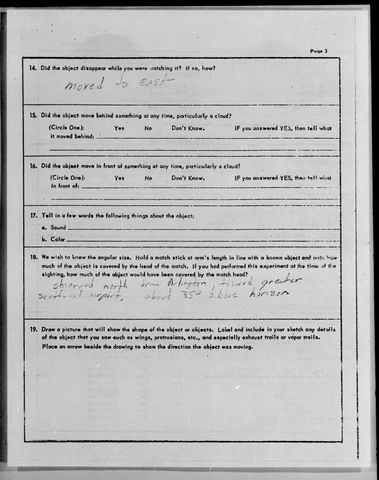 Page 3
14. Did the object disappear while you were watching it? If so, how?
moved to East
15. Did the object move behind something at any time, particularly a cloud?
(Circle One): Yes No Don't Know. IF you answered YES, then tell what
it moved behind:
16. Did the object move in front of something at any time, particularly a cloud?
(Circle One): Yes No Don't Know. IF you answered YES, then tell what
in front of:
17. Tell in a few words the following things about the object:
a. Sound
b. Color
18. We wish to know the angular size. Hold a match stick at arm's length in line with a known object and note how
much of the object is covered by the head of the match. If you had performed this experiment at the time of the
sighting, how much of the object would have been covered by the match head?
observed north from Arlington, toward greater
Southwest airport, about 35° above horizon
19. Draw a picture that will show the shape of the object or objects. Label and include in your sketch any details
of the object that you saw such as wings, protrusions, etc., and especially exhaust trails or vapor trails.
Place an arrow beside the drawing to show the direction the object was moving.